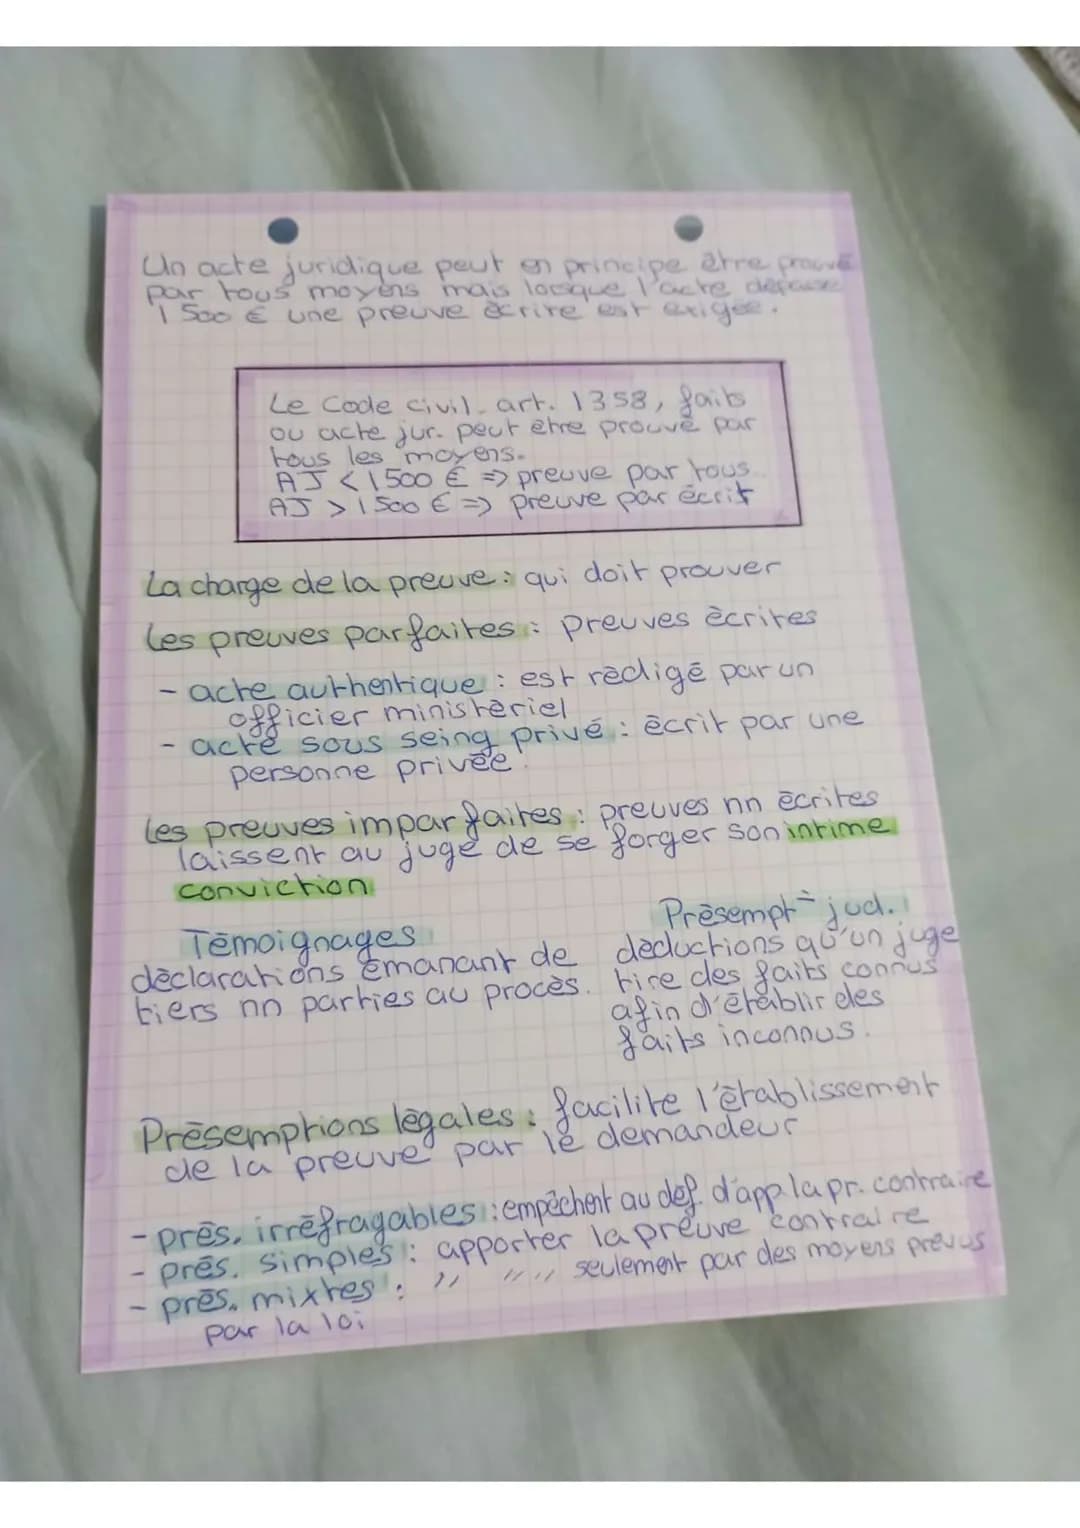 Un acte juridique peut en principe être prouvé
par tous moyens mais lorsque l'acte dépasse
1 500 € une preuve écrite est exigée.
Le Code civil, art. 1358, faits
ou acte jur. peut être prouvé par
tous les moyens.
AJ < 1500 € => preuve par tous
AJ > 1500 € => preuve par écrit
La charge de la preuve : qui doit prouver
Les preuves parfaites : preuves écrites
- acte authentique : est rédigé par un
officier ministériel
- acte sous seing privé : écrit par une
personne privée.
Les preuves imparfaites : preuves nn écrites
laissent au juge de se forger son intime
conviction
Témoignages
déclarations émanant de
tiers nn parties au procès.
Présempt° jud.
déductions qu'un juge
tire des faits connus
afin d'établir des
faits inconnus.
Présemptions légales : facilite l'établissement
de la preuve par le demandeur
- prés. irréfragables : empêchent au déf. d'app. la pr. contraire
- prés. simples : apporter la preuve contraire
- prés. mixtes : " " " seulement par des moyens prévus
par la loi